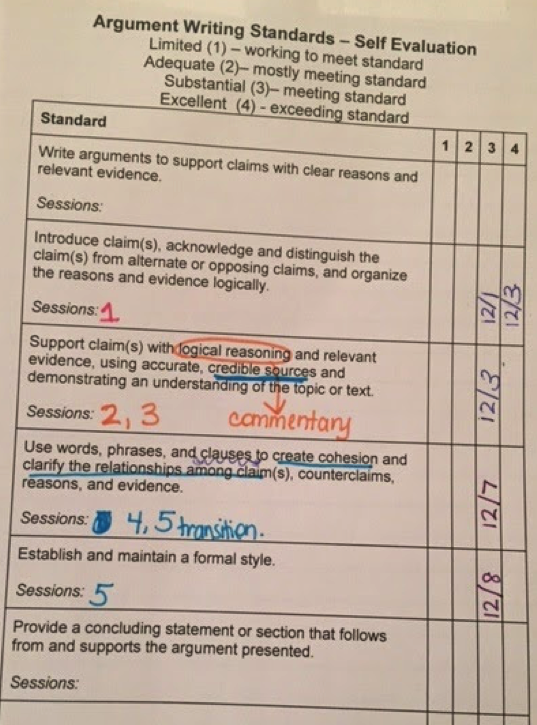 Argument Writing Standards – Self Evaluation
Limited (1) – working to meet standard
Adequate (2)– mostly meeting standard
Substantial (3)– meeting standard
Excellent (4) - exceeding standard
Standard 1 2 3 4
Write arguments to support claims with clear reasons and
relevant evidence.
Sessions:
Introduce claim(s), acknowledge and distinguish the
claim(s) from alternate or opposing claims, and organize
the reasons and evidence logically.
Sessions: 1 12/1 12/3
Support claim(s) with logical reasoning and relevant
evidence, using accurate, credible sources and
demonstrating an understanding of the topic or text.
Sessions: 2, 3 commentary 12/3
Use words, phrases, and clauses to create cohesion and
clarify the relationships among claim(s), counterclaims,
reasons, and evidence.
Sessions: 4, 5 transition. 12/7
Establish and maintain a formal style.
Sessions: 5 12/8
Provide a concluding statement or section that follows
from and supports the argument presented.
Sessions: